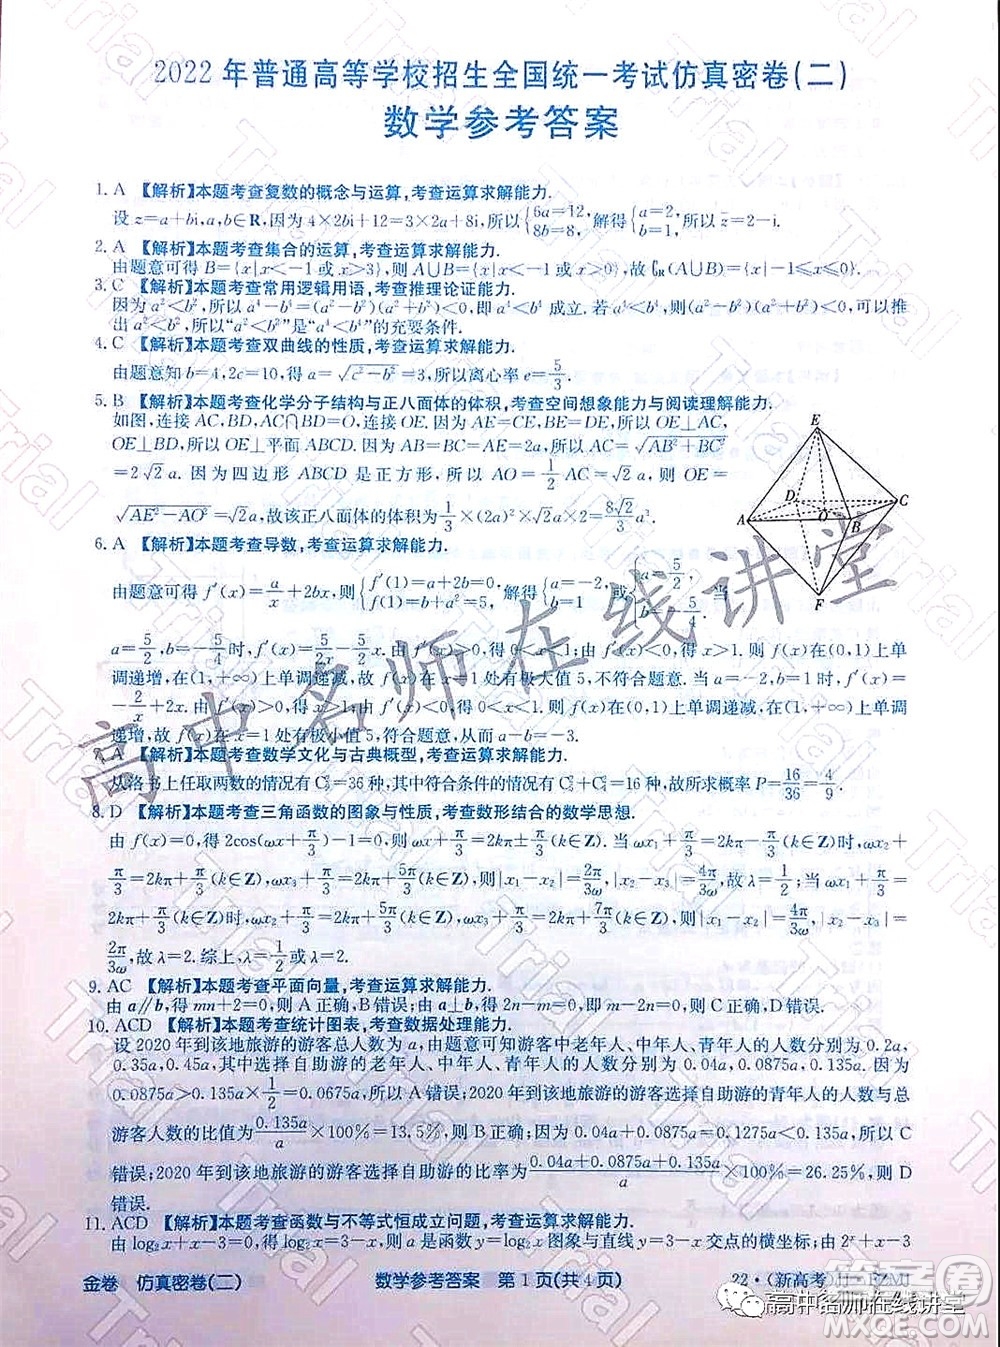 2022年普通高等学校招生全国统一考试仿真密卷(二)
数学参考答案
1. A 【解析】本题考查复数的概念与运算,考查运算求解能力.
设 z=a+bi,a,b∈R,因为 4×2bi+12=3×2a+8i,所以{6a=12, 8b=8, 解得{a=2, b=1, 所以 z̄=2-i.
2. A 【解析】本题考查集合的运算,考查运算求解能力.
由题意可得 B={x|x<-1 或 x>3},所以 A∪B={x|x<-1 或 x>0},故∁R(A∪B)={x|-1≤x≤0}.
3. C 【解析】本题考查常用逻辑用语,考查推理论证能力.
因为 a²<b²,所以 a⁴-b⁴=(a²-b²)(a²+b²)<0,即 a⁴<b⁴ 成立.若 a⁴<b⁴,则(a²-b²)(a²+b²)<0,可以推
出 a²<b²,所以“a²<b²”是“a⁴<b⁴”的充要条件.
4. C 【解析】本题考查双曲线的性质,考查运算求解能力.
由题意知 b=4,2c=10,得 a=√(c²-b²)=3,所以离心率 e=5/3.
5. B 【解析】本题考查化学分子结构与正八面体的体积,考查空间想象能力与阅读理解能力.
如图,连接 AC,BD,AC∩BD=O,连接 OE.因为 AE=CE,BE=DE,所以 OE⊥AC,
OE⊥BD,所以 OE⊥平面 ABCD.因为 AB=BC=AE=2a,所以 AC=√(AB²+BC²)
=2√2a.因为四边形 ABCD 是正方形,所以 AO=1/2AC=√2a,则 OE=
√(AE²-AO²)=√2a,故该正八面体的体积为1/3×(2a)²×√2a×2=8√2/3a³.
E
D
C
A
O
B
F
6. A 【解析】本题考查导数,考查运算求解能力.
由题意可得 f′(x)=a/x+2bx,则{f′(1)=a+2b=0, a²+4b²+b=5, 解得{a=5/2, b=-5/4,
a=5/2,b=-5/4时,f′(x)=5/2x-5/2x.由 f′(x)>0,得 0<x<1;由 f′(x)<0,得 x>1,则 f(x)在(0,1)上单
调递增,在(1,+∞)上单调递减,故 f(x)在 x=1 处有极大值 5,不符合题意.
-2/x+2x,由 f′(x)>0,得 x>1;由 f′(x)<0,得 0<x<1,则 f(x)在(0,1)上单调递减,在(1,+∞)上单调递
增,故 f(x)在 x=1 处有极小值 5,符合题意,从而 a-b=-3.
7. A 【解析】本题考查数学文化与古典概型,考查运算求解能力.
从洛书上任取两数的情况有 C²₉=36 种,其中符合条件的情况有 C²₅+C²₄=16 种,故所求概率 P=16/36=4/9.
8. D 【解析】本题考查三角函数的图象与性质,考查数形结合的数学思想.
由 f(x)=0,得 2cos(ωx+π/3)-1=0,则 cos(ωx+π/3)=1/2.当 ωx₁+π/3=2kπ-π/3(k∈Z)时,ωx₂+
π/3=2kπ+π/3(k∈Z),ωx₃+π/3=2kπ+5π/3(k∈Z),则|x₁-x₂|=|2π/3ω|,|x₂-x₃|=|4π/3ω|,故 λ=1/2;当 ωx₁+π/3=
2kπ+π/3(k∈Z)时,ωx₂+π/3=2kπ+5π/3(k∈Z),ωx₃+π/3=2kπ+7π/3(k∈Z),则|x₁-x₂|=|4π/3ω|,|x₂-x₃|=
|2π/3ω|,故 λ=2.综上,λ=1/2或 λ=2.
9. AC 【解析】本题考查平面向量,考查运算求解能力.
由 a∥b,得 mn+2=0,则 A 正确,B 错误;由 a⊥b,得 m-2n=0,则 C 正确,D 错误.
10. ACD 【解析】本题考查统计图表,考查数据处理能力.
设 2020 年到该地旅游的游客总人数为 a,由题意可知游客中老年人、中年人、青年人的人数分别为 0.2a,
0.35a,0.45a,其中选择自助游的老年人、中年人、青年人的人数分别为 0.04a,0.0875a,0.135a.因为
0.0875a×1/2=0.0675a,所以 A 错误;2020 年到该地旅游的游客选择自助游的青年人的人数与总
游客人数的比为0.135a/a×100%=13.5%,则 B 正确;因为 0.04a+0.0875a>0.135a/a,所以 C
错误;2020 年到该地旅游的游客选择自助游的比率为0.04a+0.0875a+0.135a/a×100%=26.25%,则 D
错误.
11. ACD 【解析】本题考查函数与不等式恒成立问题,考查运算求解能力.
由 log₂x+x-3=0,得 log₂x=3-x,则 x₁是函数 y=log₂x 图象与直线 y=3-x 交点的横坐标;由 2ˣ+x-3
金卷 仿真密卷(二) 数学参考答案 第1页(共4页) 22·(新高考)JJ-FZMJ
高中名师在线讲堂
高中名师在线讲堂
Trial
答案圈
MXQE.COM